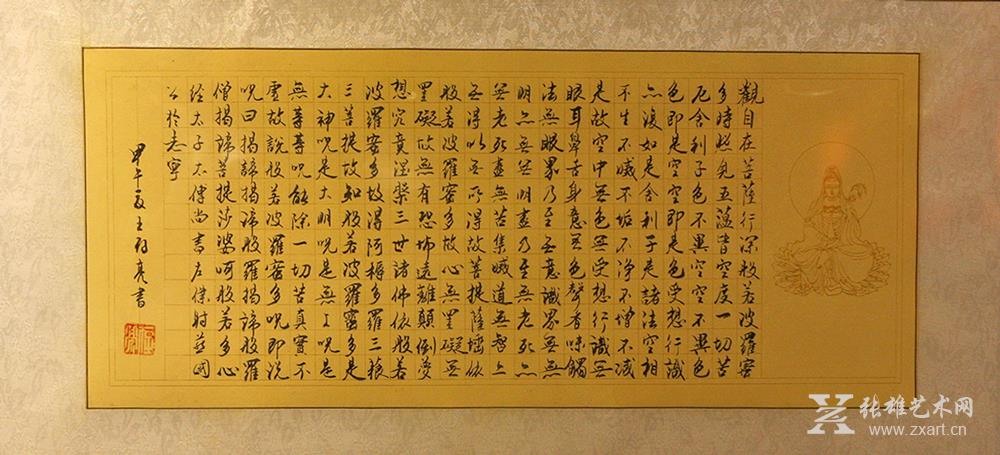 觀自在菩薩行深般若波羅蜜
多時照見五蘊皆空度一切苦
厄舍利子色不異空空不異色
色即是空空即是色受想行識
亦復如是舍利子是諸法空相
不生不滅不垢不淨不增不減
是故空中無色無受想行識無
眼耳鼻舌身意無色聲香味觸
法無眼界乃至無意識界無無
明亦無無明盡乃至無老死亦
無老死盡無苦集滅道無智亦
無得以無所得故菩提薩埵依
般若波羅蜜多故心無罣礙無
罣礙故無有恐怖遠離顛倒夢
想究竟涅槃三世諸佛依般若
波羅蜜多故得阿耨多羅三藐
三菩提故知般若波羅蜜多是
大神咒是大明咒是無上咒是
無等等咒能除一切苦真實不
虛故說般若波羅蜜多咒即說
咒曰揭諦揭諦般羅揭諦般羅
僧揭諦菩提莎婆呵般若多心
經太子太傅尚書左僕射燕國
公於志寧
甲午夏王亮書
张雄艺术网
www.zxart.cn